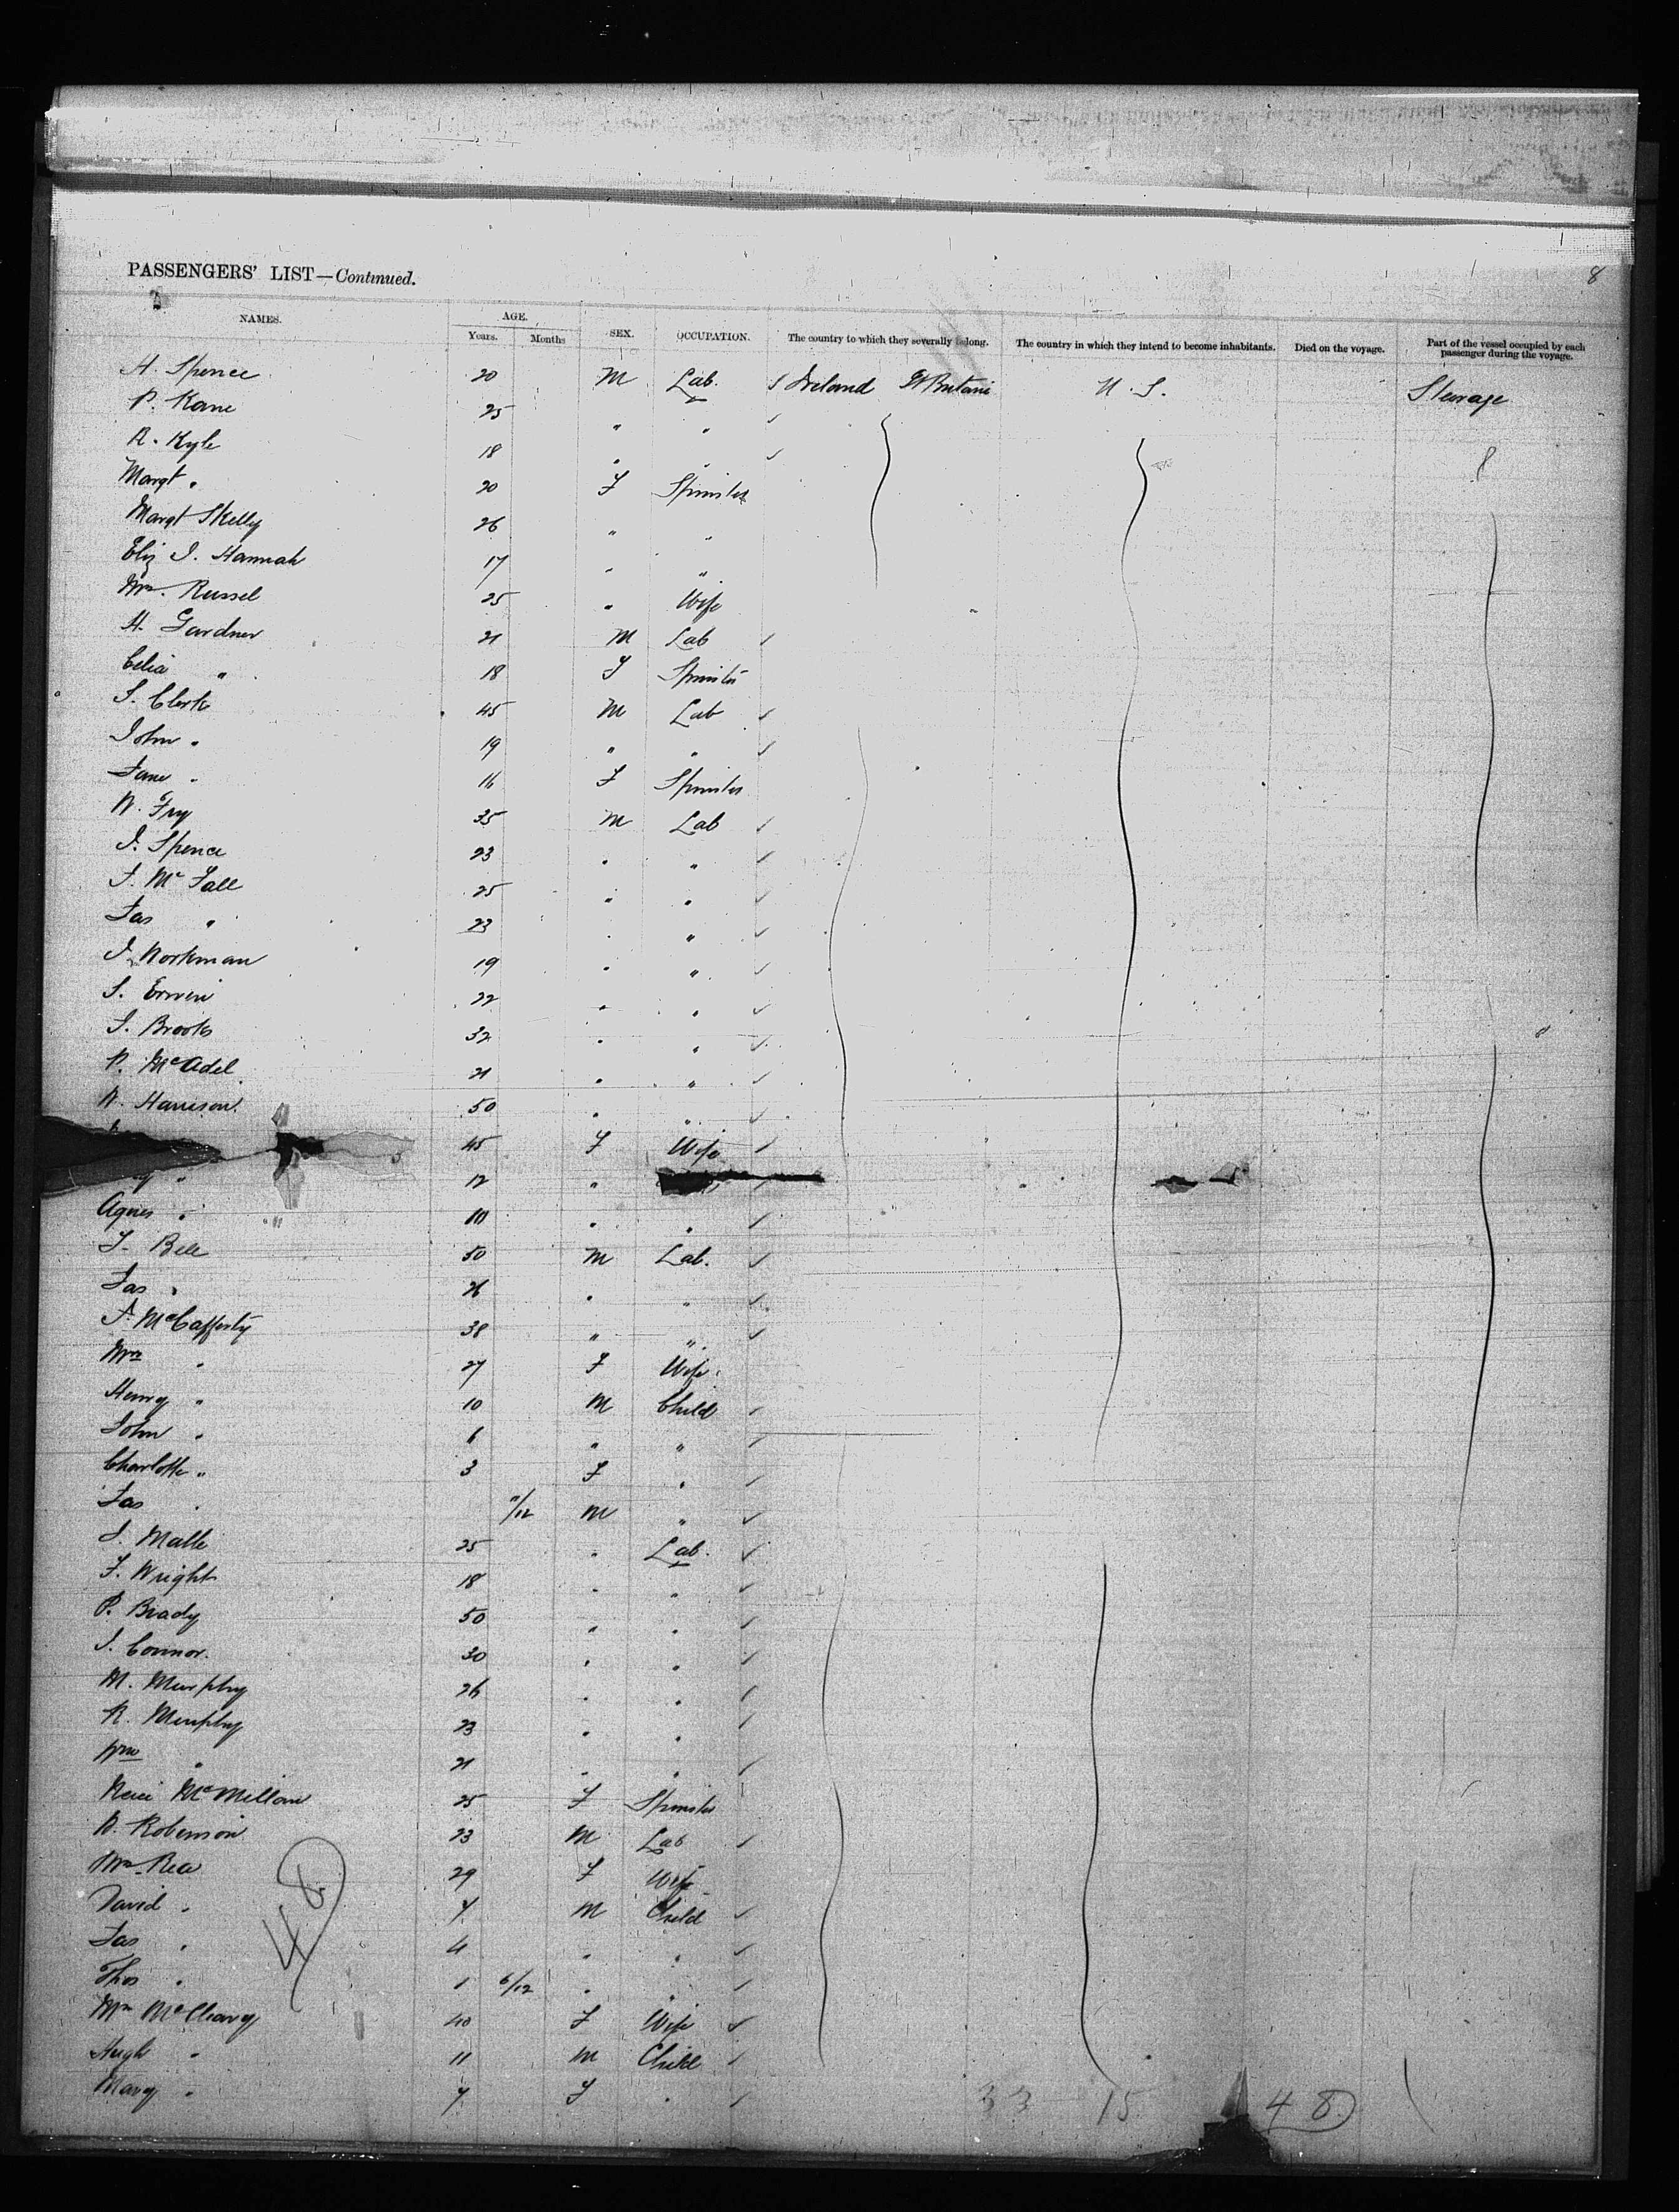 8
PASSENGERS' LIST—Continued.
NAMES. AGE. Years. Months SEX. OCCUPATION. The country to which they severally belong. The country in which they intend to become inhabitants. Died on the voyage. Part of the vessel occupied by each passenger during the voyage.
H. Spence 20 M Lab. Ireland Gt Britain U. S. Steerage
P. Kane 25 " "
R. Kyle 18 " "
Margt " 20 F Spinster
Margt Skelly 26 " "
Eliz J. Hannah 17 " "
Mrs. Russel 25 " Wife
H. Gardner 21 M Lab
Celia " 18 F Spinster
S. Clark 45 M Lab
John " 19 " "
Jane " 16 F Spinster
W. Fry 35 M Lab
J. Spence 23 " "
J. McFall 25 " "
Jas " 23 " "
J. Workman 19 " "
S. Erwin 22 " "
S. Brooks 32 " "
P. McAdel 21 " "
W. Harrison 50 " "
45 F Wife
" 12 "
Agnes " 10 " "
J. Bell 50 M Lab.
Jas " 26 " "
J. McCafferty 38 " "
Mrs " 27 F Wife
Henry " 10 M Child
John " 6 " "
Charlotte " 3 F "
Jas " 11/12 M "
25 " Lab.
J. Wright 18 " "
P. Brady 50 " "
J. Connor 30 " "
M. Murphy 26 " "
R. Murphy 23 " "
Wm " 21 " "
McMillan 25 F Spinster
W. Robinson 23 M Lab
Mrs Rea 29 F Wife
David " 7 M Child
Jas " 4 " "
Thos " 1 6/12 " "
Mrs McCleary 40 F Wife
Hugh " 11 M Child
Mary " 7 F "
48
33 15 48